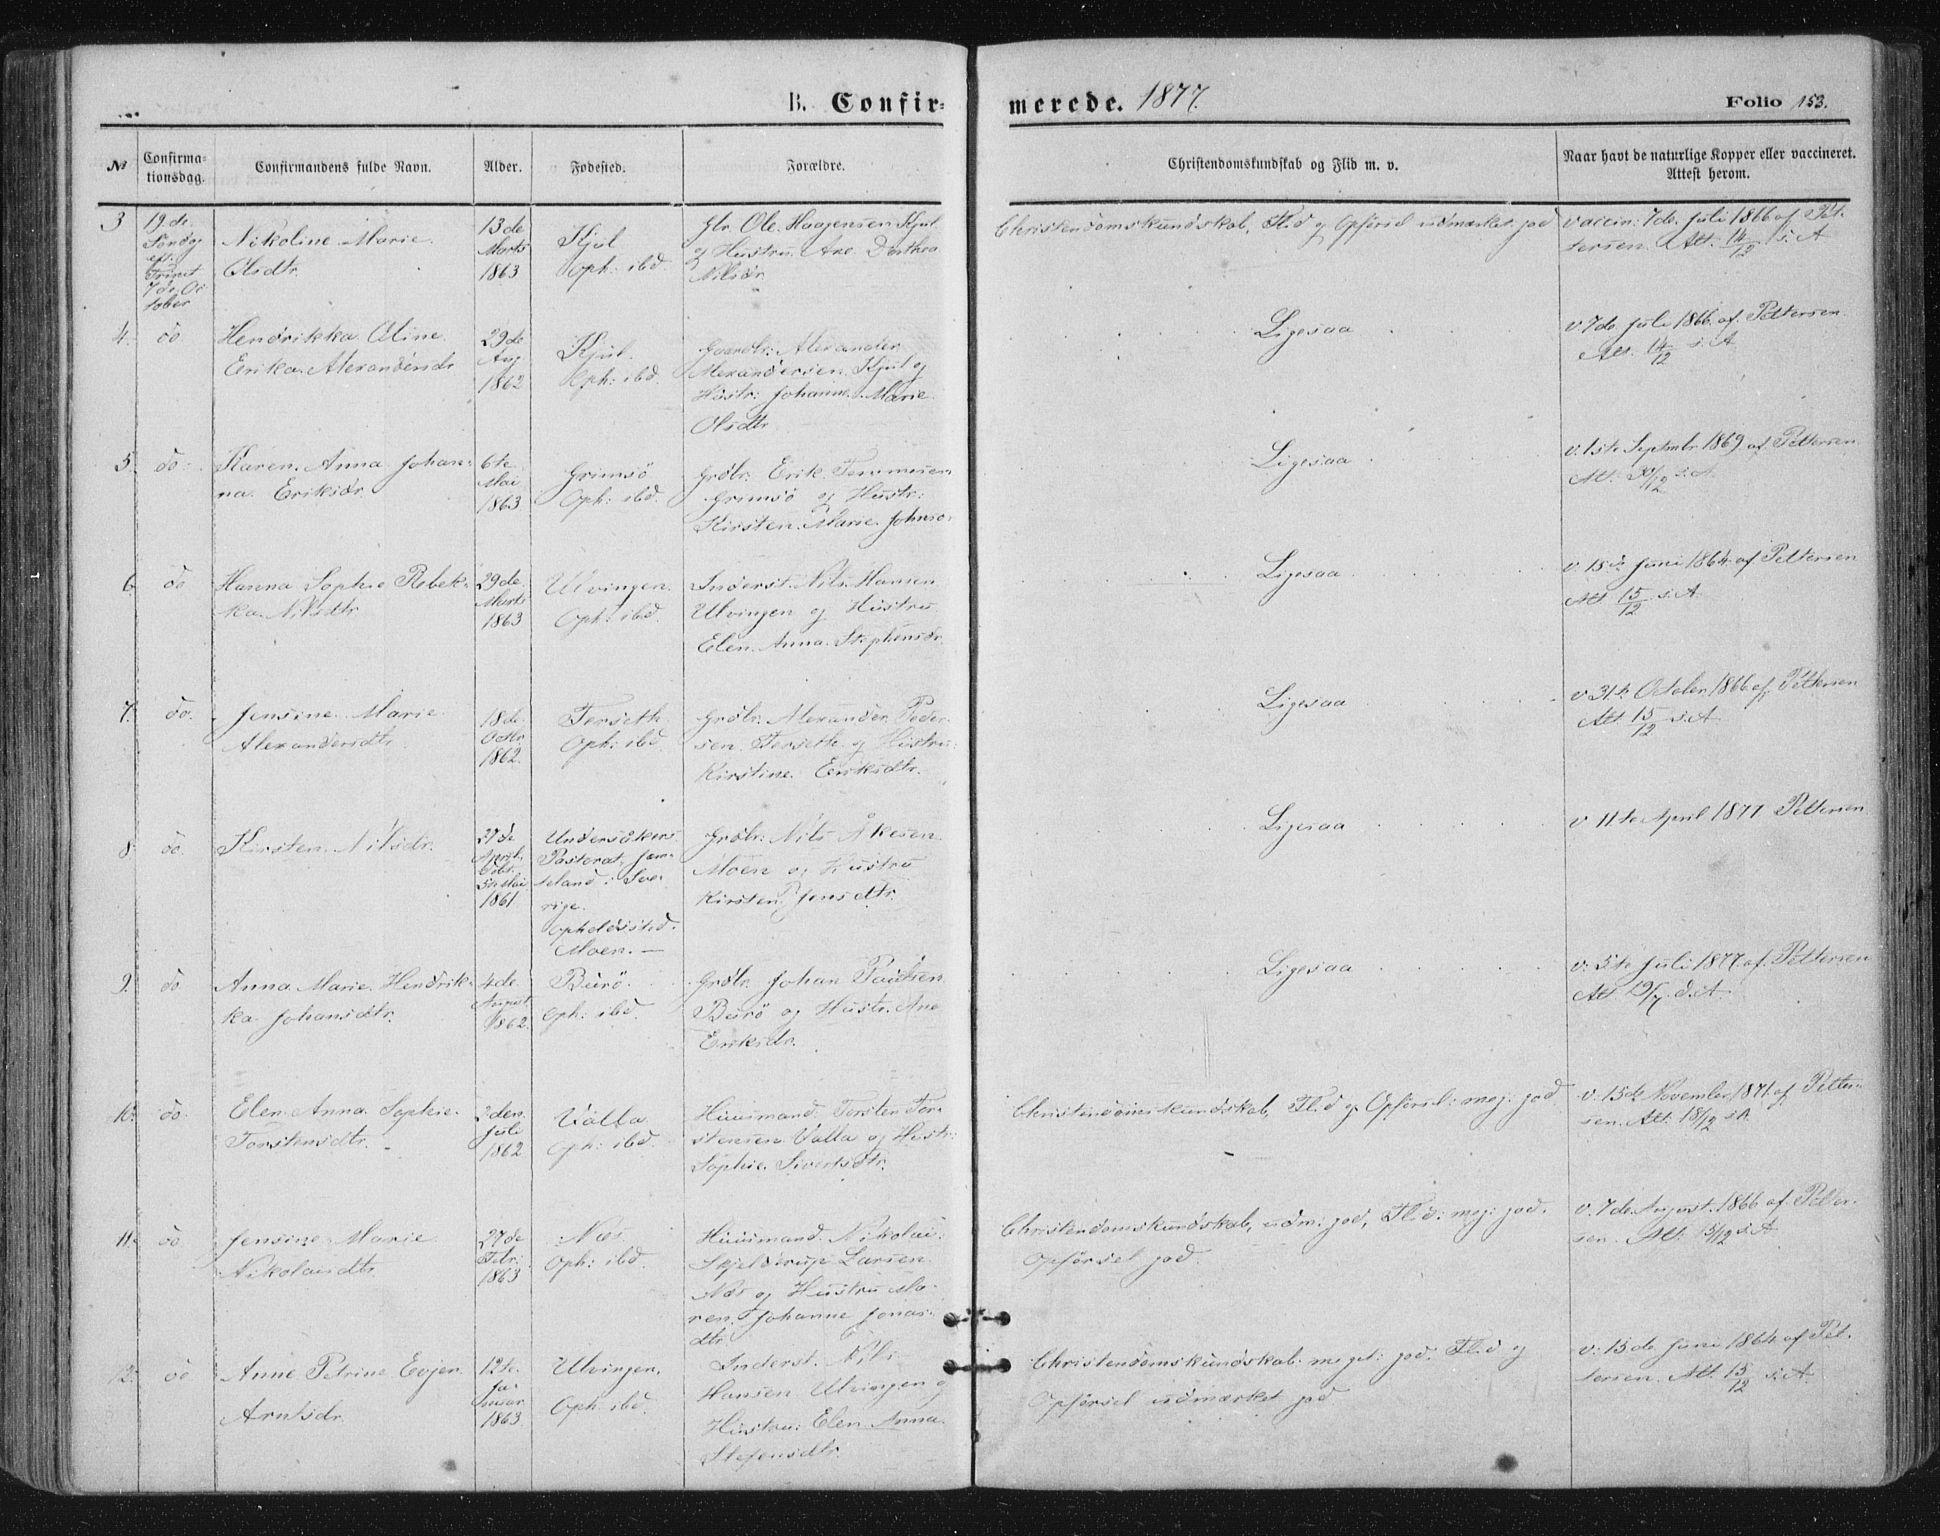 B. Confir-merede. 1877. Folio 153.
№ Confirma-tionsdag. Confirmandens fulde Navn. Alder. Fødested. Forældre. Christendomskundskab og Flid m. v. Naar havt de naturlige Kopper eller vaccineret. Attest herom.
3 19de Søndag eft. Trinit 7de Oc tober
Nikoline Marie
Olsdtr.
13de Marts 1863
Kjul
Oph: ibd.
Gbr. Ole Haagensen Kjul
og Hustru Ane Dorthea
Nilsdr
Christendomskundskab, Flid og Opførsel udmærket god
vaccin. 7de Juli 1866 af Pet-
tersen. Att. 14/12 s. A
4. do
Hendrikka Oline
Erika Alexandersdr
29de Aug 1862
Kjul.
Oph: ibd.
Gaardbr: Alexander
Alexandersen Kjul og
Hustr: Johanne Marie
Olsdtr
Ligesaa
v. 7de Juli 1866. af Pettersen.
Att. 14/12 s. A
5. do
Karen Anna Johan-
na Eriksdr
6te Mai 1863
Grimsø
Oph: ibd.
Grdbr: Erik
Grimsø og Hustr:
Kirsten Marie
Ligesaa
v. 1ste Septmbr 1869 af Pettersen.
Att: 30/12 s. A.
6 do
Hanna Sophie Rebek-
ka Nilsdtr
29de Marts 1863
Ulvingen.
Oph: ibd.
Inderst Nils Hansen
Ulvingen og Hustru
Elen Anna Stephensdr.
Ligesaa
v 15de Juni 1864 af Pettersen
Att 15/12 s. A.
7. do.
Jensine Marie
Alexandersdtr
18de Octbr 1862.
Forseth
Oph: ibd.
Grdbr. Alexander Peder-
sen Forseth og Hustru:
Kirstine Eriksdtr.
Ligesaa
v 31te October 1866 af Pettersen
Att 15/12 s. A
8 do.
Kirsten Nilsdr.
27de April 5te Mai 1861
Undersåkers
Pastorat, Jæm-
teland i Sve-
rige.
Opholdssted.
Moen. —
Grdbr: Nils Åkesen
Moen og Hustru
Kirsten Jensdtr.
Ligesaa
v 11te April 1877 Pettersen
9. do
Anna Marie Hendrik-
ka Johansdtr.
4de August 1862.
Burø
Oph: ibd.
Grdbr. Johan
Burø og Hustr. Ane
Eriksdr.
Ligesaa
v: 5te Juli 1877 af Pettersen
Att 12/7 d. A.
10. do.
Elen Anna Sophie
Torstensdtr.
2den Juli 1862
Valla
Oph: ibd.
Huusmand Torsten Tor-
stensen Valla og Hustr:
Sophie Sivertsdtr.
Christendomskundskab, Flid og Opførsel: meg: god
v. 15de November 1871 af Petter-
sen. Att: 18/12 s. A.
11. do
Jensine Marie
Nikolaisdtr
27de Febr. 1863
Næs
Oph: ibd.
Huusmand Nikolai
Skjelderup Larsen
Næs og Hustru Ma-
ren Johanne Jonas-
dtr
Christendomskundskab, udm: god, Flid: meg: god.
Opførsel god.
v. 7de August 1866 af Petter-
sen. Att. 15/12 s. A
12. do
Anne Petrine Evjen
Arntsdr.
12te Januar 1863
Ulvingen.
Oph: ibd.
Inderst. Nils
Hansen Ulvingen og
Hustru: Elen Anna
Stefensdtr.
Christendomskundskab meget: god. Flid og
Opførsel udmærket god
v. 15de Juni 1864 af Pet-
tersen. Att. 15/12 s. A.